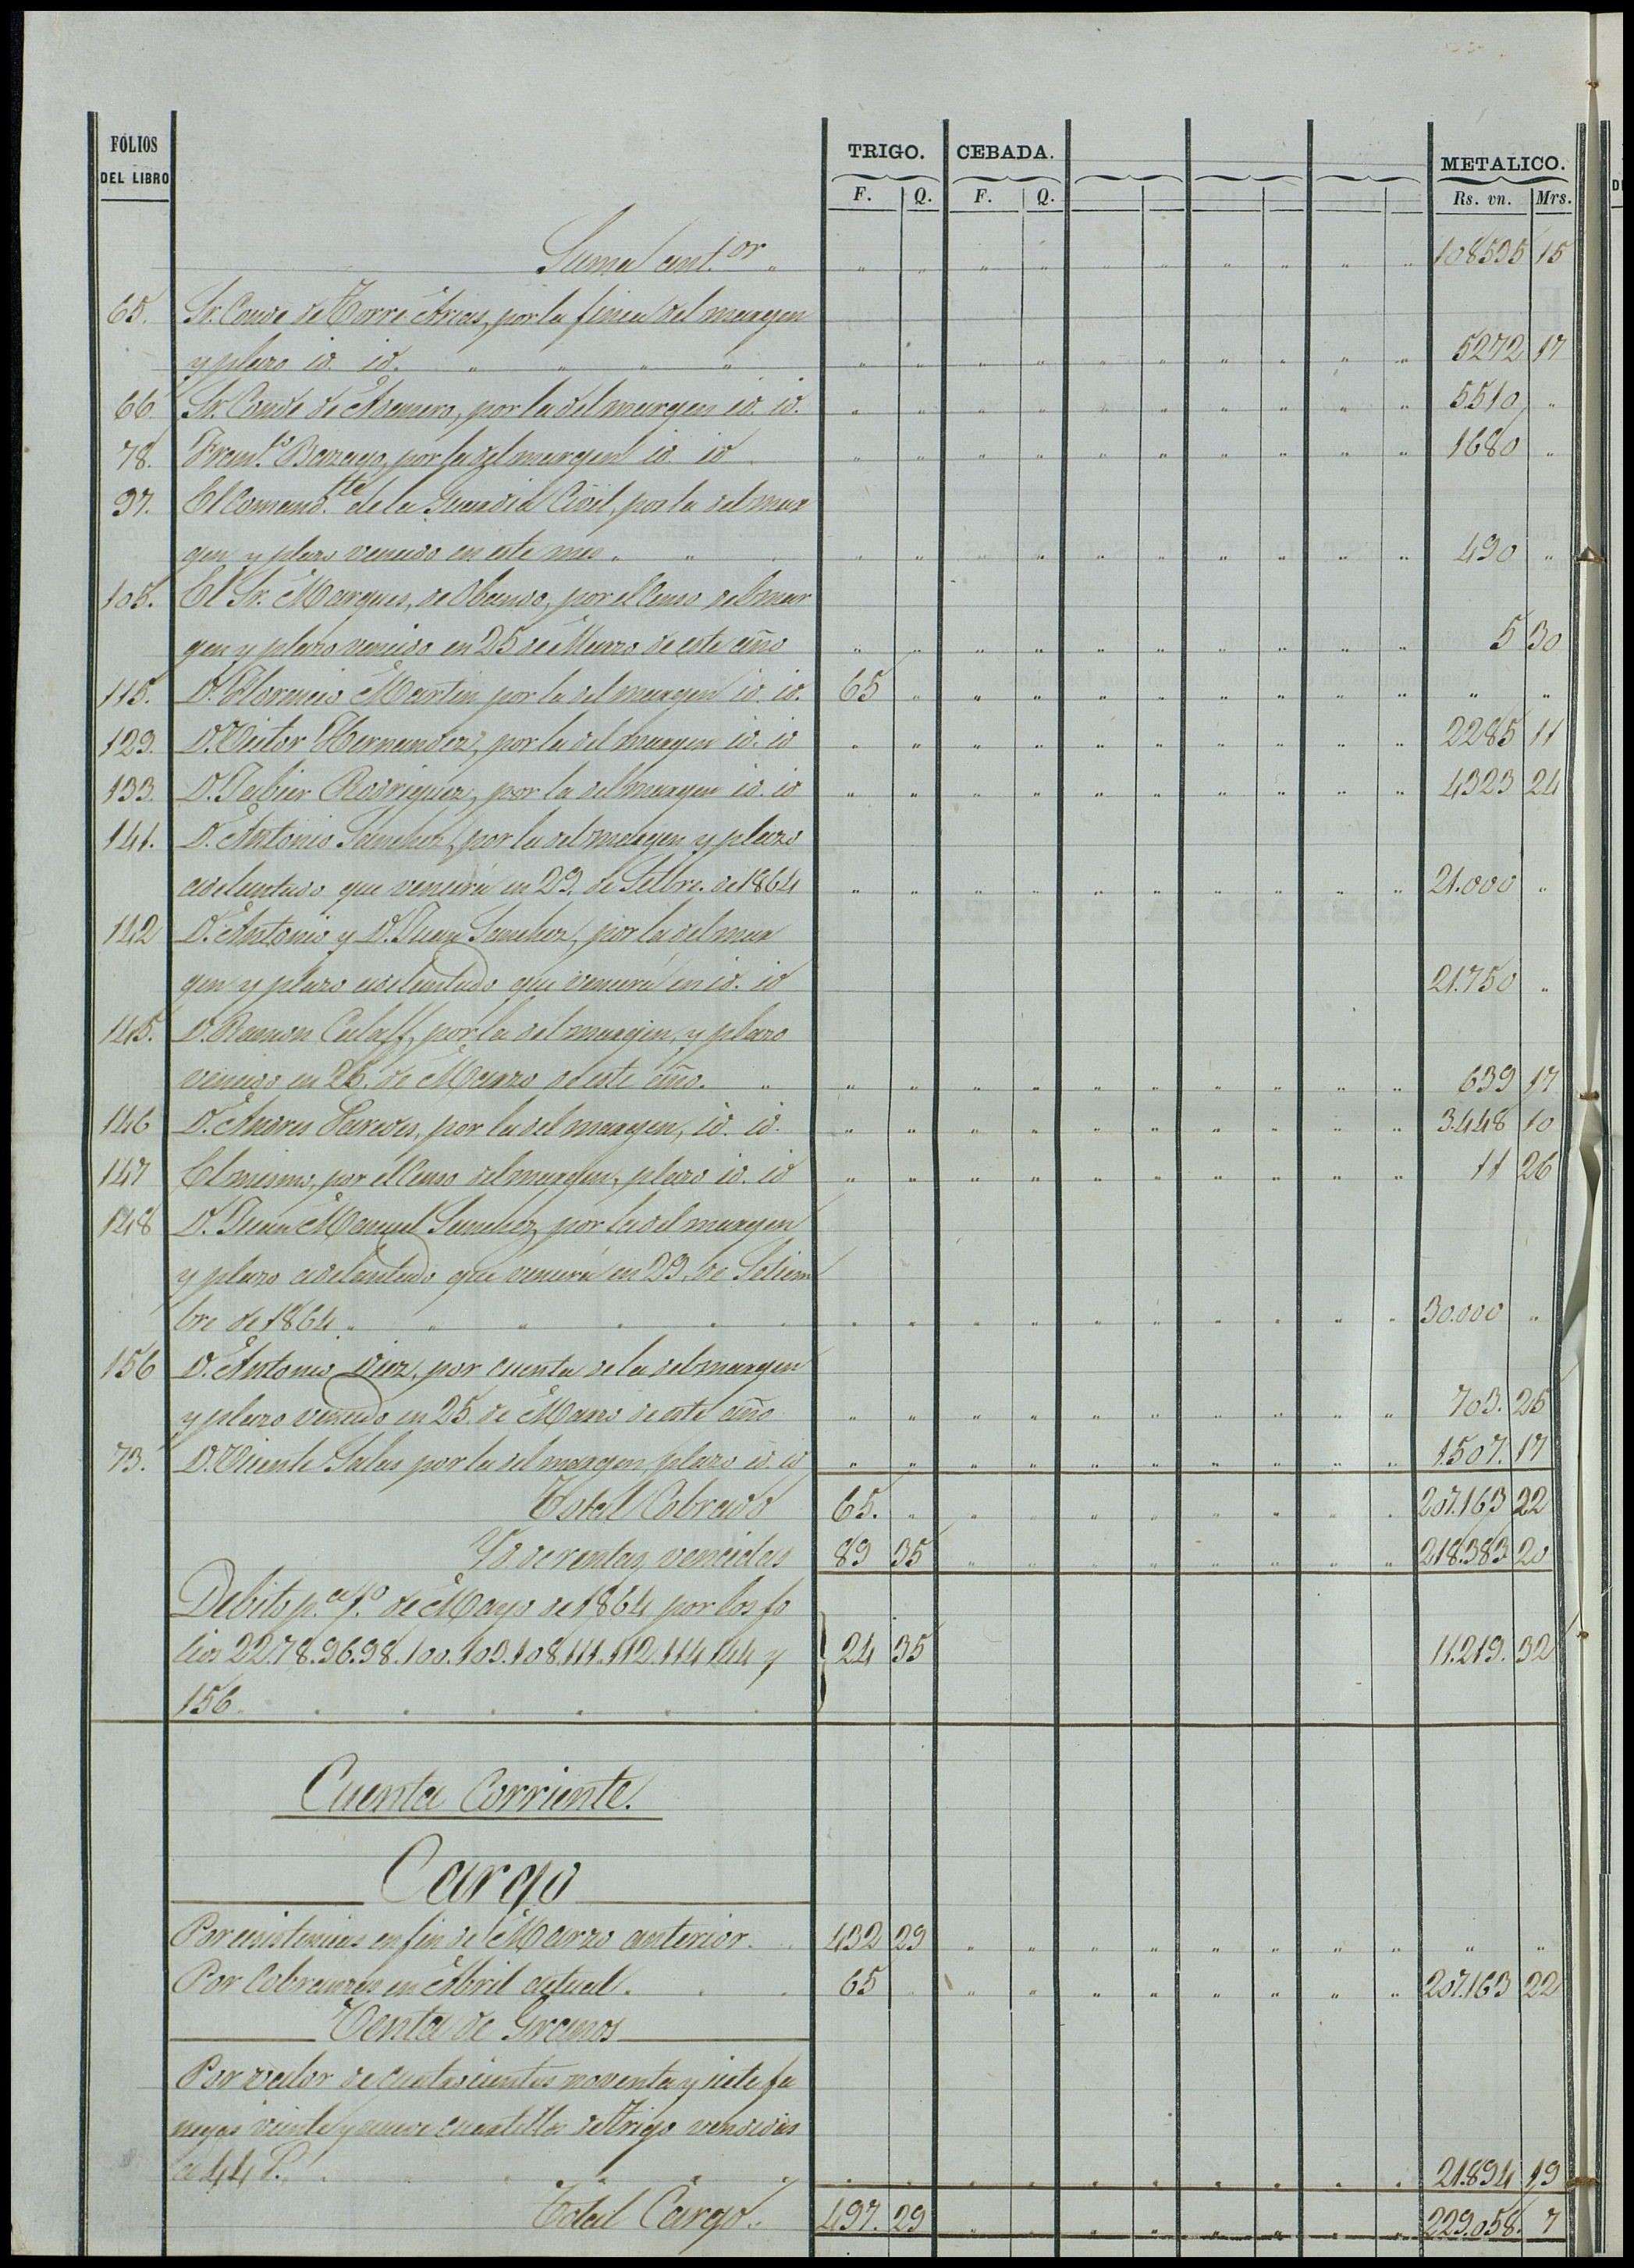 FÓLIOS
DEL LIBRO
TRIGO. CEBADA. METALICO.
F. Q. F. Q. Rs. vn. Mrs.
Suma ant.or 108535 15
65. Sr. Conde de Torre Arias, por la finca del margen
y plazo id. id. 5272 17
66. Sr. Conde de Adanero, por la del margen id. id. 5510
78. Fran.co por la del margen id. id 1680
97. El Comand.tte de la Guardia Civil, por la del mar
gen y plazo vencido en este mes 490
105. El Sr. Marques, de Obando, por el Censo del mar
gen y plazo vencido en 25 de Marzo de este año 5 30
115. D. Florencio Martin por la del margen id. id. 65
129. D. Victor Hernandez, por la del margen id. id 2285 11
133. D. Jabier Rodriguez, por la del margen id. id 4323 24
141. D. Antonio Sanchez, por la del margen y plazo
adelantado que vencerá en 29 de Setbre. de 1864 21.000
142 D. Antonio y D. Juan Sanchez, por la del mar
gen y plazo adelantado que vencerá en id. id 21.750
145. D. Ramon Calaff, por la del margen, y plazo
vencido en 25. de Marzo de este año. 639 17
146 D. Andres Paredes, por la del margen, id. id. 3448 10
147 El mismo, por el Censo del margen, plazo id. id 11 26
148 D. Juan Manuel Sanchez, por la del margen
y plazo adelantado que vencerá en 29, de Setiem
bre de 1864 30.000
156 D. Antonio Diez, por cuenta de la del margen
y plazo vencido en 25 de Marzo de este año 703. 25
73. D. Vicente Salas por la del margen, plazo id. id 1.507. 17
Total Cobrado 65. 207.163 22
Yd. de rentas vencidas 89 35 218.383 20
Debito p.a 1.o de Mayo de 1864 por los fo
lios 22.78.96.98.100.103.108.111.112.114.144 y 24 35 11.219. 32
156
Cuenta Corriente.
Cargo
Por existencias en fin de Marzo anterior. 432 29
Por Cobranzas en Abril actual. 65 207.163 22
Venta de Granos
Por valor de cuatrocientas noventa y siete fa
negas veinte y nueve cuartillos de trigo vendidas
a 44 21.894 19
Total Cargo 497. 29 229.058. 7